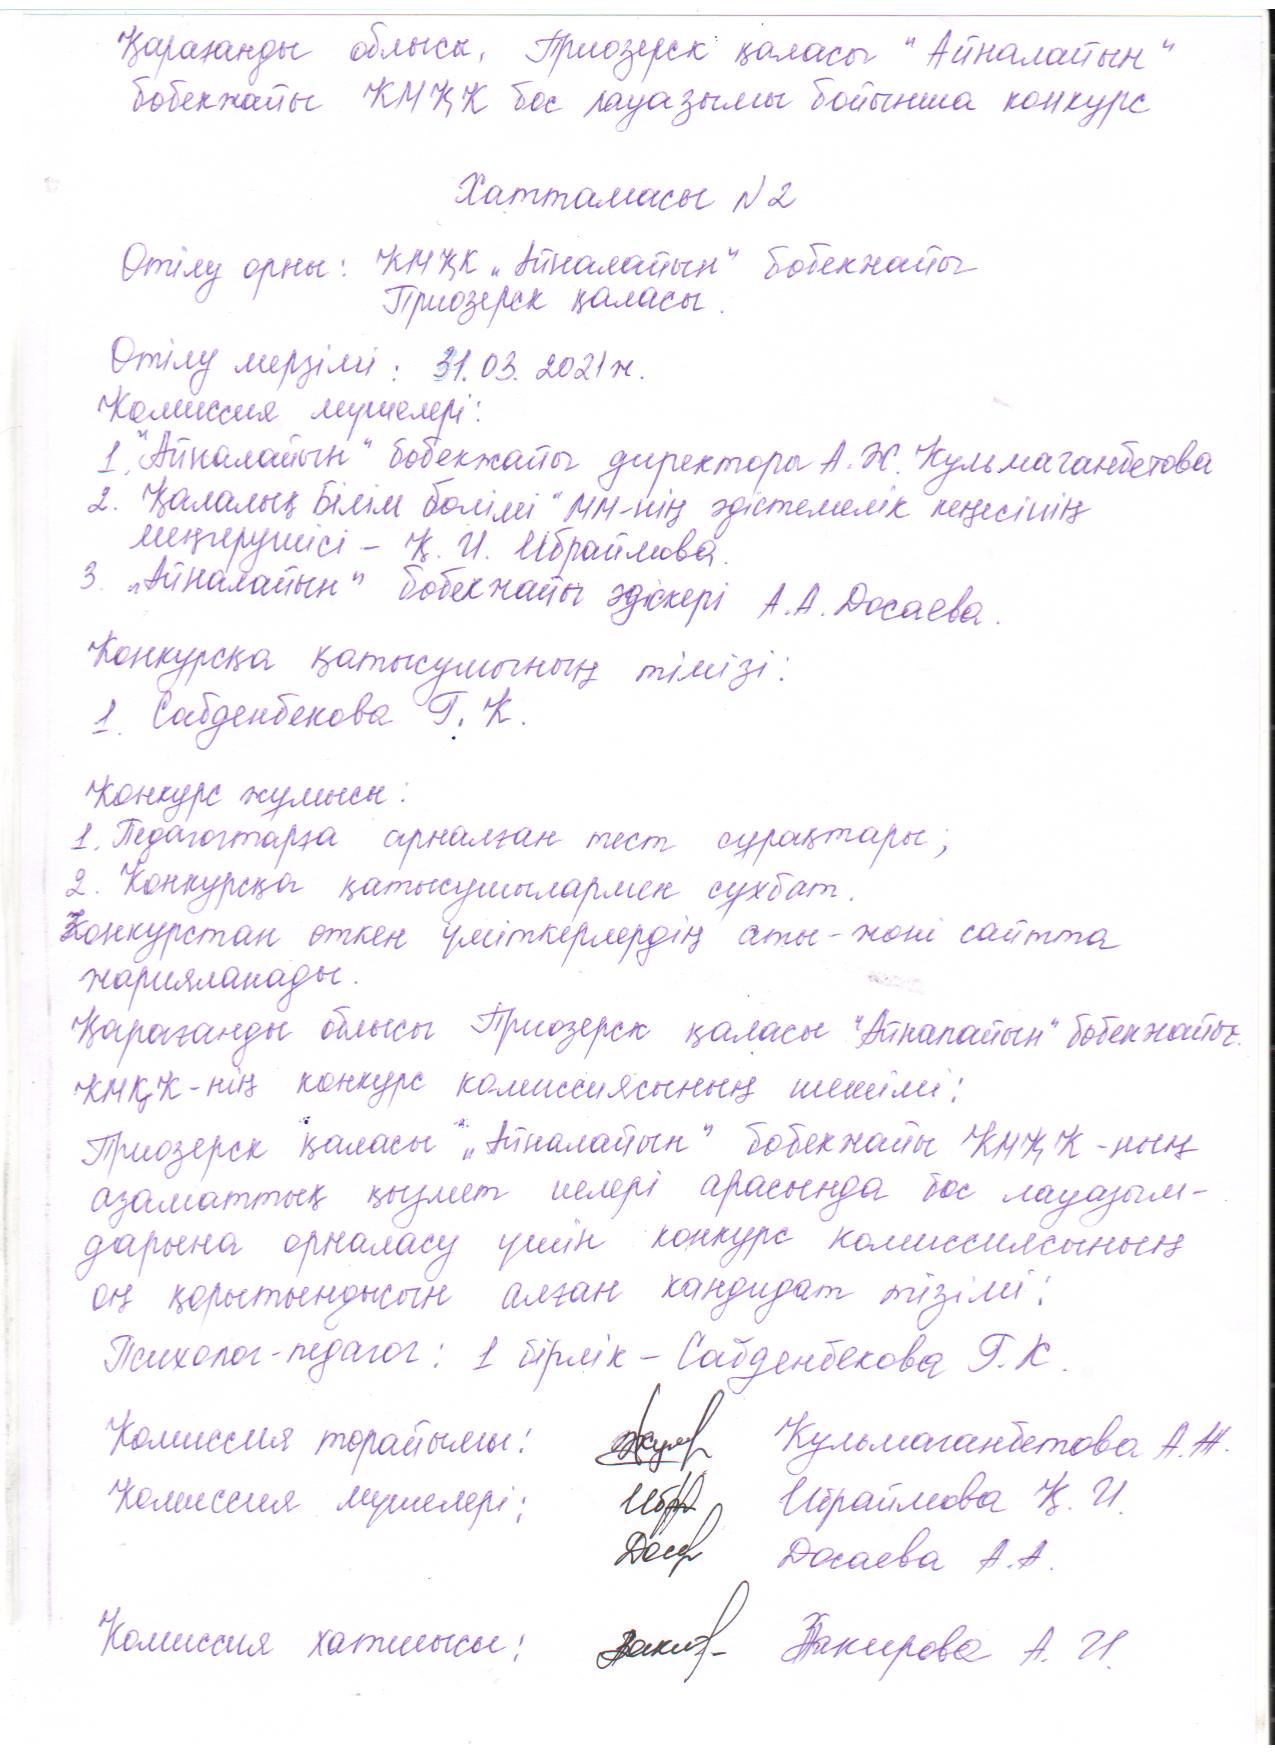 Қарағанды облысы, Приозерск қаласы "Айналайын"
бөбекжайы КМҚК бос лауазымы бойынша конкурс
Хаттамасы N2
Өтілу орны: КМҚК „Айналайын" бөбекжайы
Приозерск қаласы.
Өтілу мерзімі: 31.03.2021ж.
Комиссия мүшелері:
1. "Айналайын" бөбекжайы директоры А.Ж. Кульмаганбетова
2. Қалалық Білім бөлімі" ММ-нің әдістемелік кеңесінің
меңгерушісі – Қ. И. Ибраймова.
3. „Айналайын" бөбекжайы әдіскері А.А. Досаева.
Конкурсқа қатысушының тімізі:
1. Сабденбекова Г. К.
Конкурс жұмысы:
1. Педагогтарға арналған тест сұрақтары;
2. Конкурсқа қатысушылармен сұхбат.
Конкурстан өткен үміткерлердің аты-жөні сайтта
жарияланады.
Қарағанды облысы Приозерск қаласы "Айналайын" бөбекжайы
КМҚК-нің конкурс комиссиясының шешімі:
Приозерск қаласы „Айналайын" бөбекжайы КМҚК-ның
азаматтық қызмет иелері арасында бос лауазым-
дарына орналасу үшін конкурс комиссиясының
оң қорытындысын алған кандидат тізімі:
Психолог-педагог: 1 бірлік – Сабденбекова Г.К.
Комиссия төрайымы: Кульмаганбетова А.Ж.
Комиссия мүшелері: Ибр Ибраймова Қ. И.
Досаева А.А.
Комиссия хатшысы: Закирова А. И.